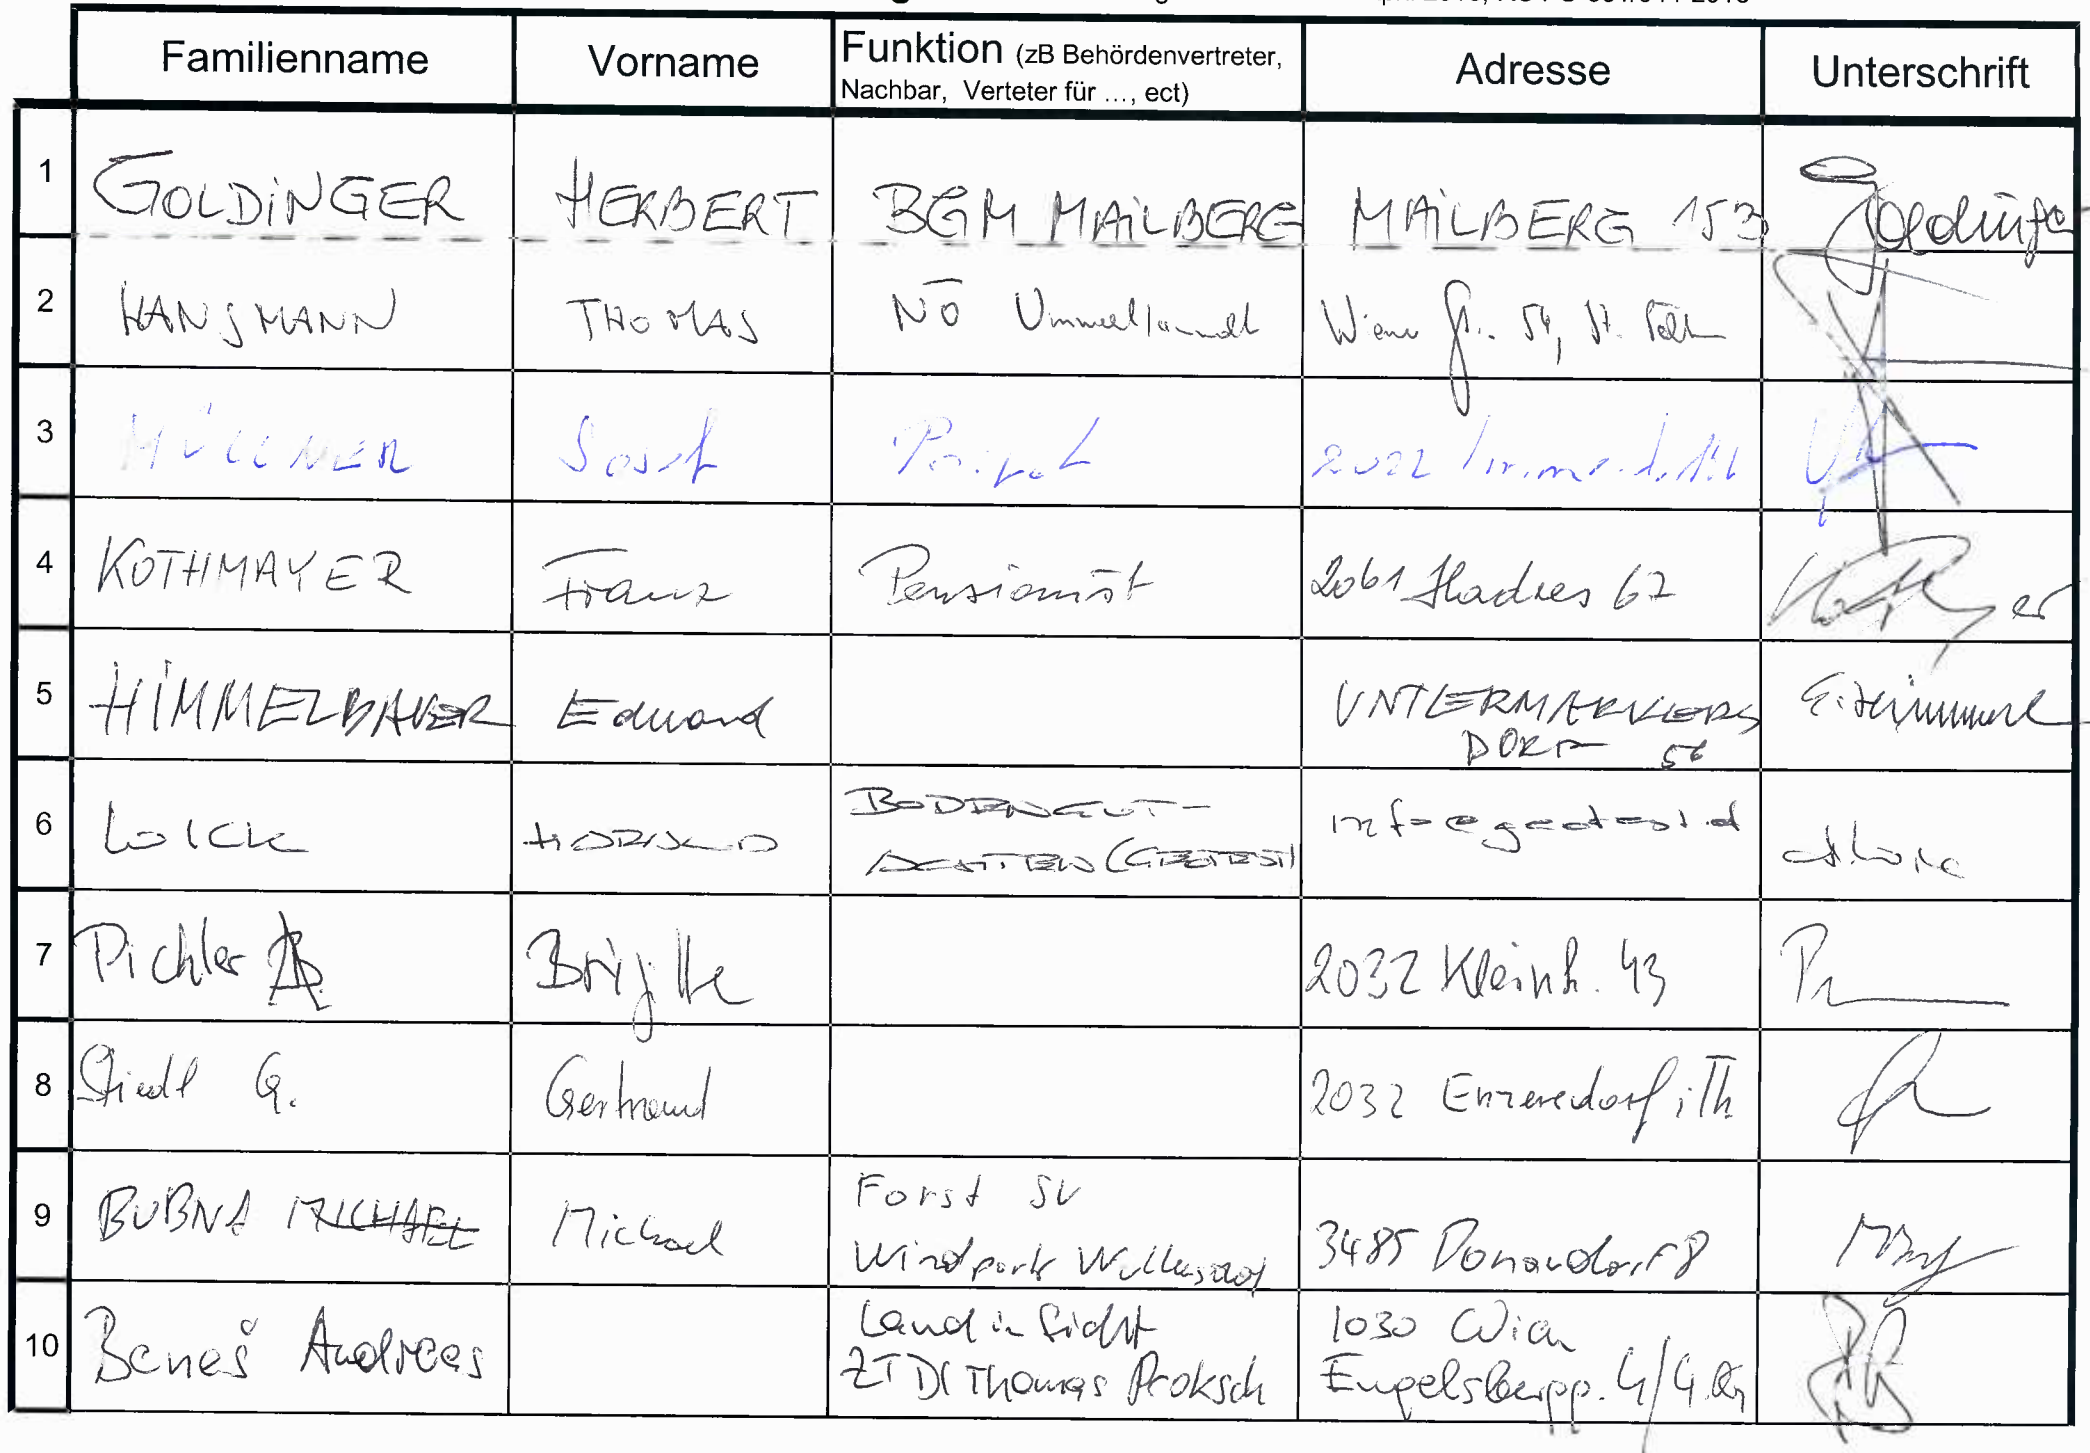 Familienname Vorname Funktion (zB Behördenvertreter, Nachbar, Verteter für ..., ect) Adresse Unterschrift
1 GOLDiNGER HERBERT BGM MAiLBERG MAiLBERG 153 Goldinger
2 HANSMANN THOMAS NÖ Umweltanwalt Wiener Str. 54, St. Pölten
3 MÜLLNER Josef 2022
4 KOTHMAYER Franz Pensionist 2061 Hadres 67
5 HiMMELBAUER Eduard UNTERMARKERS
DORF 56
6 LOICK HARALD BODENGUT-
ACHTEN (GEOTEST)
7 Pichler Brigitte 2032 Kleinh. 43
8 Stiedl G. Gertraud 2032 Enzersdorf i Th
9 BUBNA MICHAEL Michael Forst SV
Windpark Wullersdorf 3485 Donaudorf 8
10 Beneš Andreas Land in Sicht
ZT DI Thomas Proksch 1030 Wien
Engelsbergg. 4/4.